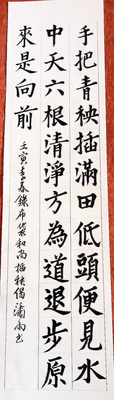 手把青秧插滿田低頭便見水
中天六根清淨方為道退步原
來是向前
壬寅春錄布袋和尚插秧偈瀟雨書